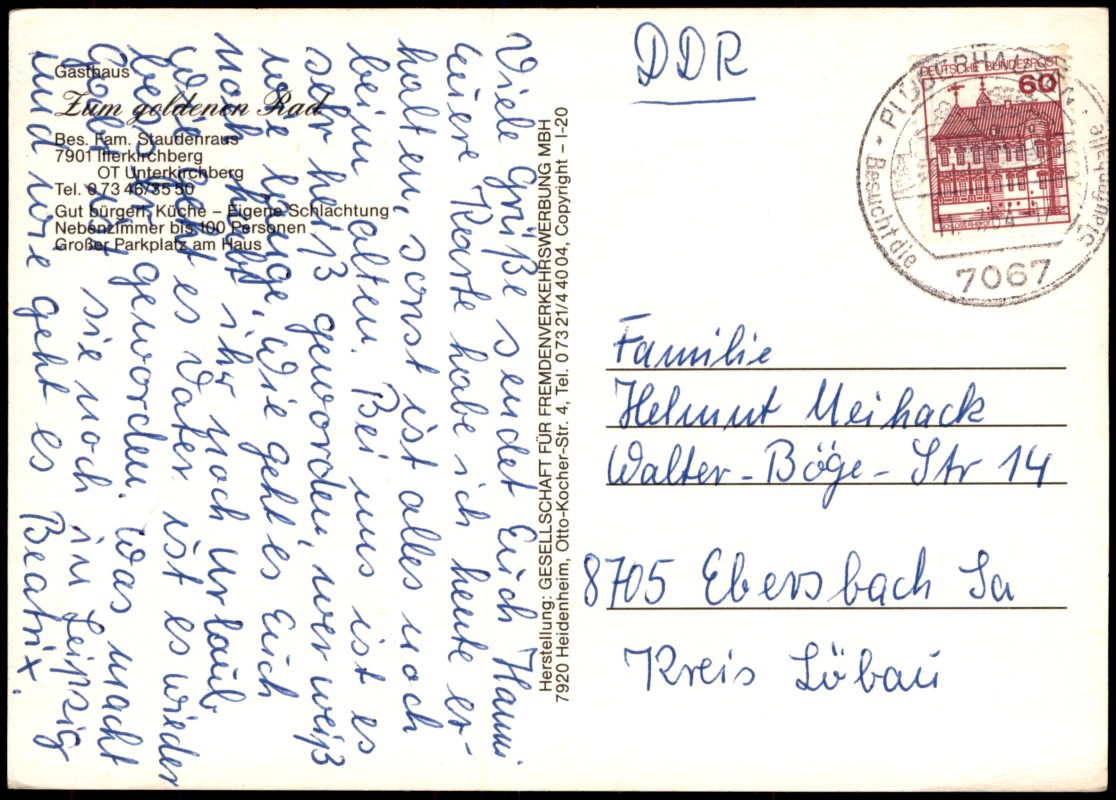 Gasthaus
Zum goldenen Rad
Bes. Fam. Staudenraus
7901 Illerkirchberg
OT Unterkirchberg
Tel. 0 73 46/35 50
Gut bürgerl. Küche – Eigene Schlachtung
Nebenzimmer bis 100 Personen
Großer Parkplatz am Haus
Viele Grüße sendet Euch Hanni
Euere Karte habe ich heute er-
halten, sonst ist alles noch
beim alten. Bei uns ist es
sehr heiß geworden, wer weiß
wie lange. Wie geht es Euch
noch habt ihr noch Urlaub
Wie geht es Vater ist es wieder
besser geworden. Was macht
Gabi ist sie noch in Leipzig
und wie geht es Beatrix.
Herstellung: GESELLSCHAFT FÜR FREMDENVERKEHRSWERBUNG MBH
7920 Heidenheim, Otto-Kocher-Str. 4, Tel. 0 73 21/4 40 04, Copyright – I-20
DDR
DEUTSCHE BUNDESPOST
60
Besucht die
7067
Familie
Helmut Meihack
Walter-Böge-Str 14
8705 Ebersbach Sa
Kreis Löbau